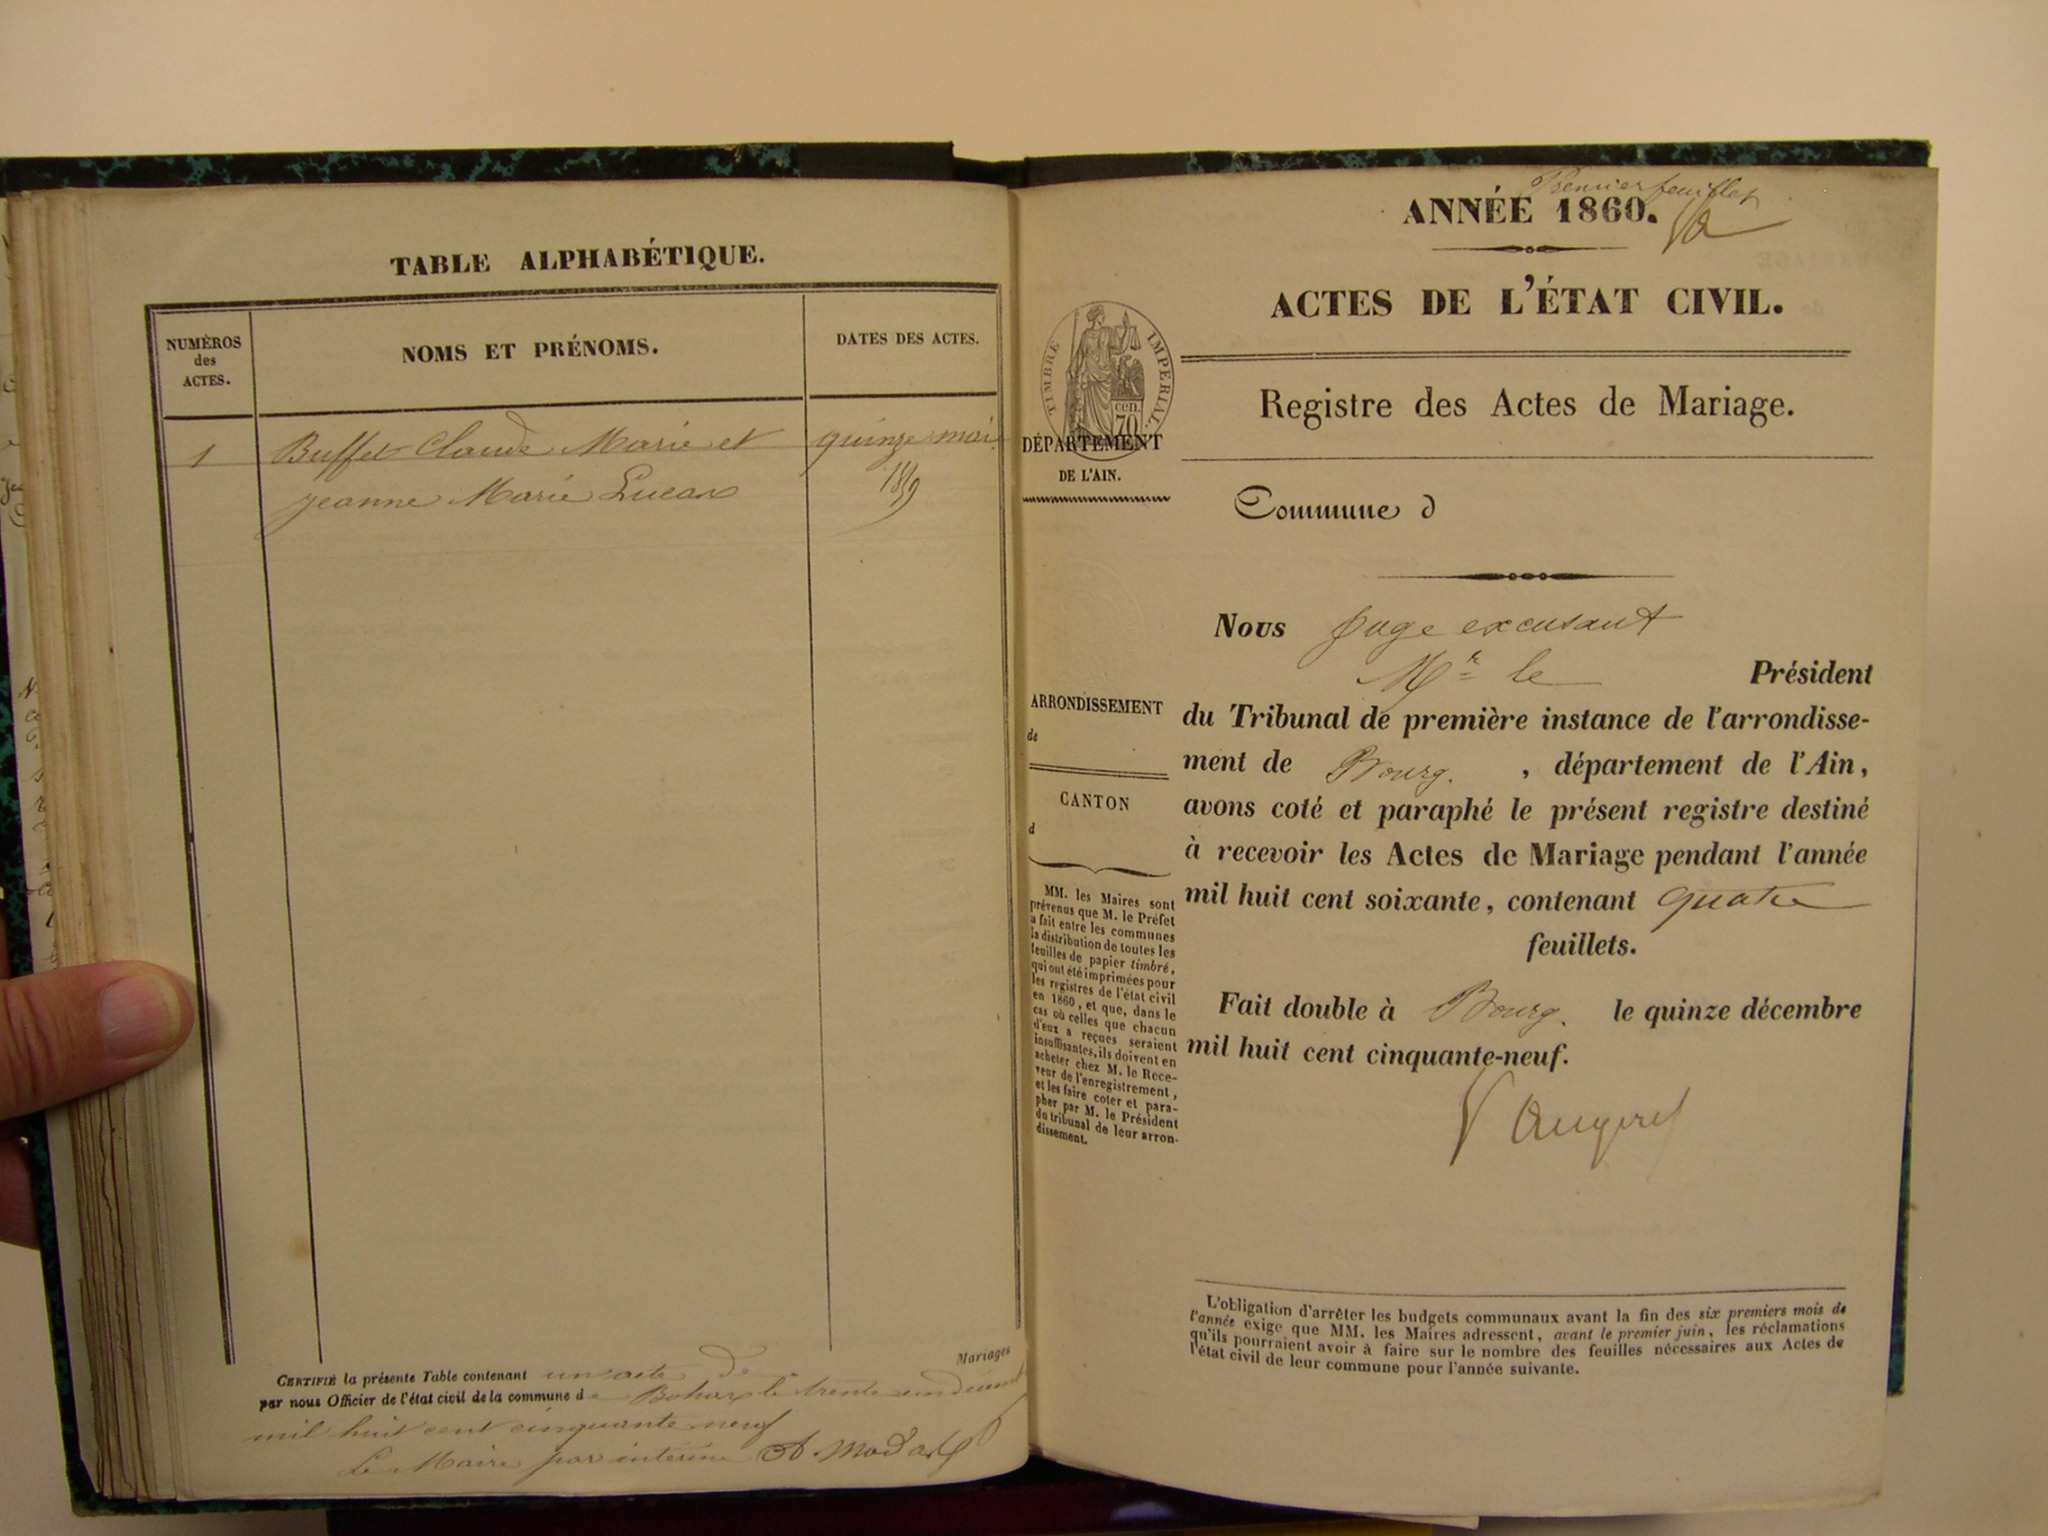 TABLE ALPHABÉTIQUE.
NUMÉROS
des
ACTES.
NOMS ET PRÉNOMS.
DATES DES ACTES.
1 Buffet Claude Marie et quinze mai
jeanne Marie Lucas 1859
CERTIFIÉ la présente Table contenant un acte de Mariages
par nous Officier de l'état civil de la commune de Bohas le trente un
mil huit cent cinquante neuf
Le Maire par interim
Premier feuillet
ANNÉE 1860.
ACTES DE L'ÉTAT CIVIL.
Registre des Actes de Mariage.
TIMBRE IMPERIAL
70 cen.
DÉPARTEMENT
DE L'AIN.
Commune d
Nous juge excusant
Mr le Président
du Tribunal de première instance de l'arrondisse-
ment de Bourg. , département de l'Ain,
avons coté et paraphé le présent registre destiné
à recevoir les Actes de Mariage pendant l'année
mil huit cent soixante, contenant quatre
feuillets.
Fait double à Bourg. le quinze décembre
mil huit cent cinquante-neuf.
ARRONDISSEMENT
de
CANTON
d
MM. les Maires sont
prévenus que M. le Préfet
a fait entre les communes
la distribution de toutes les
feuilles de papier timbré,
qui ont été imprimées pour
les registres de l'état civil
en 1860, et que, dans le
cas où celles que chacun
d'eux a reçues seraient
insuffisantes, ils doivent en
acheter chez M. le Rece-
veur de l'enregistrement,
et les faire coter et para-
pher par M. le Président
du tribunal de leur arron-
dissement.
L'obligation d'arrêter les budgets communaux avant la fin des six premiers mois de
l'année exige que MM. les Maires adressent, avant le premier juin, les réclamations
qu'ils pourraient avoir à faire sur le nombre des feuilles nécessaires aux Actes de
l'état civil de leur commune pour l'année suivante.